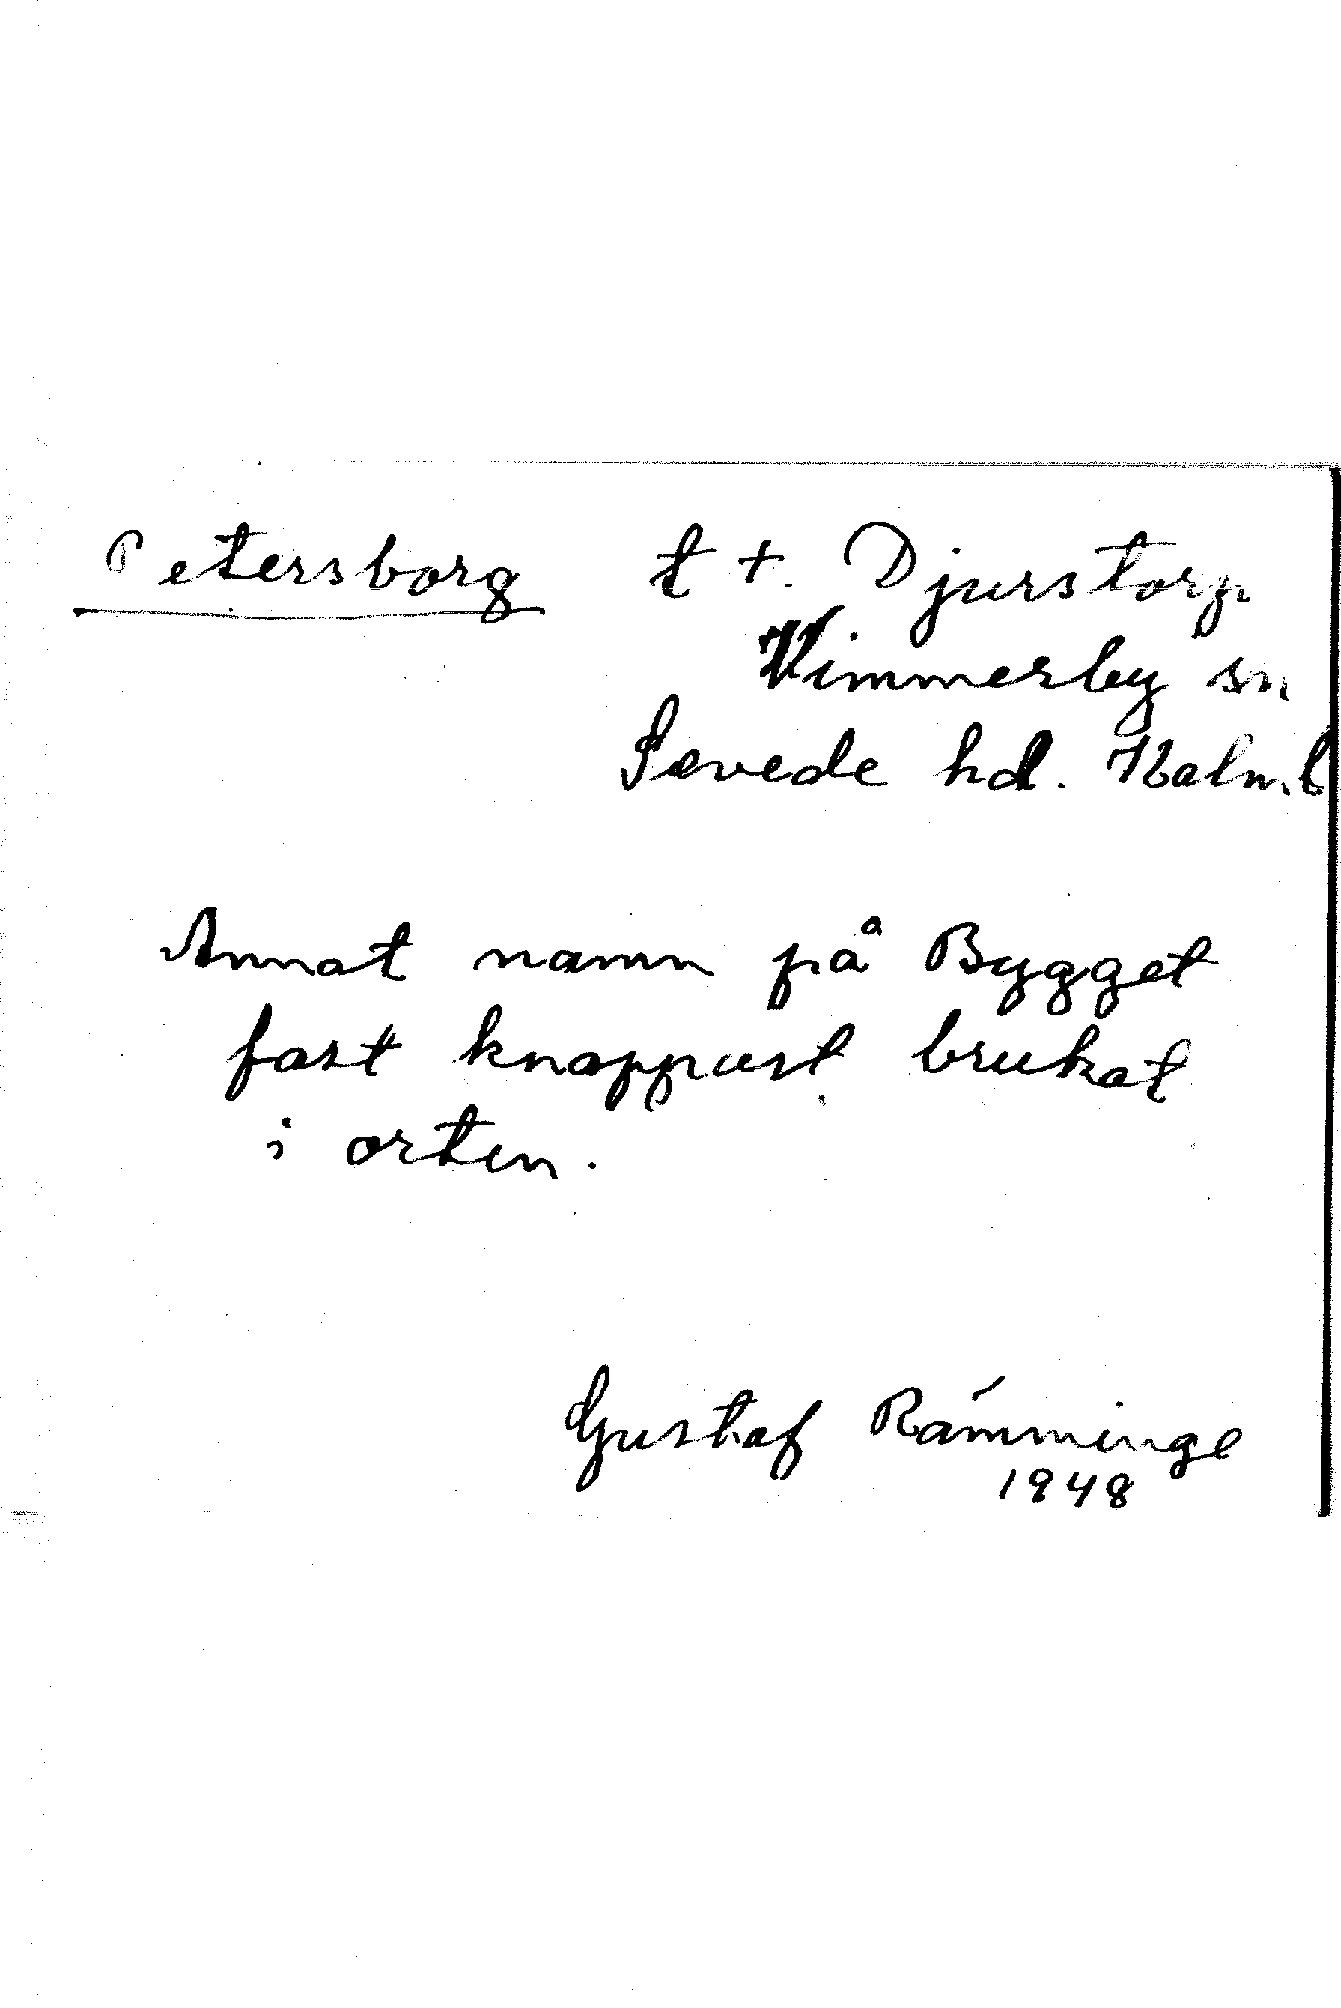 Petersborg t +. Djurstorp
Vimmerby sn
Sevede hd. Kalm. l
Annat namn på Bygget
fast knappast brukat
i orten.
Gustaf Rämminge
1948